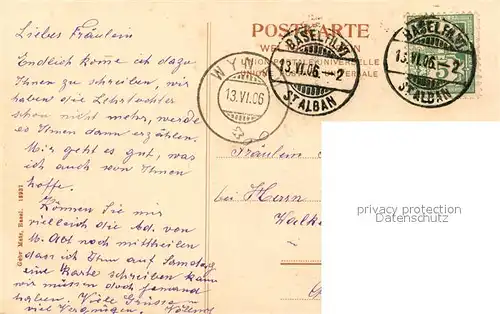 POSTKARTE
WELTPOSTVEREIN
UNION POSTALE UNIVERSELLE
Liebes Fräulein
Endlich komme ich dazu
Ihnen zu schreiben, wir
haben die Lehrtochter
schon nicht mehr, werde
es Ihnen dann erzählen.
Mir geht es gut, was
ich auch von Ihnen
hoffe.
Können Sie mir
vielleicht die Ad. von
M. Abt noch mittheilen
dass ich Ihm auf Samstag
eine Karte schreiben kann
wir müssen doch jemand
haben. Viele Grüsse
viel Vergnügen.
WYNAU
13.VI.06
BASEL FAVI
13.VI.06.–2
ST ALBAN
BASEL FAVI
13.VI.06.–2
ST ALBAN
5
Fräulein
bei Herrn
Gebr Metz, Basel. 18931
privacy protection
watermark